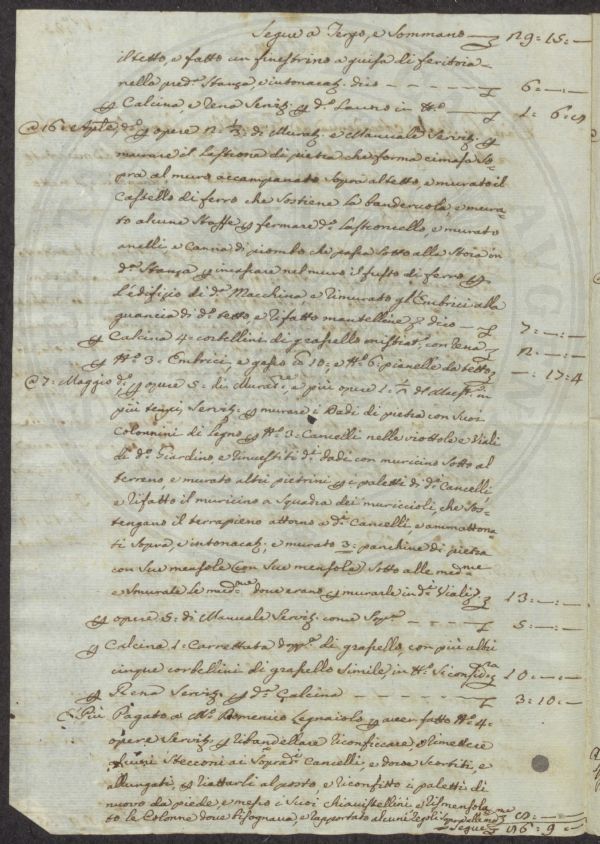 Segue a Tergo, e Sommano — 129 = 15 = —
il tetto, e fatto un finestrino a guisa di feritoia
nella pred.ª Stanza, e intonacat.º dico — 6 = — = —
Calcina, e rena Servit. p d.º Lavoro in tt.º — 1 = 6 =
@ 16 = Aple, d.º p opere di Murat. e Manuale Servit. p
murare il Lastrone di pietra che forma cimasa So-
pra al muro accampanato Sopra al tetto, e murato il
Castello di ferro che Sostiene la banderuola, e mura-
to alcune Staffe p fermare d.º Lastroncello, e murato
anelli, e Canna di piombo che passa Sotto alla Stoia in
d.ª Stanza, p incassare nel muro il fusto di ferro p
L'edifizio di d.ª Macchina e rimurato gl'Embrici alla
guancia di d.º tetto e rifatto mantelline dico — 7 = — = —
p Calcina 4 = corbellini di grassello mistiat. con rena — = —
p tt.º 3 = Embrici, e gesso 10 = e tt.º 6 = pianelle da tetto — = 17 = 4
@ 7 = Maggio d.º, p opere 5 = di Murat.re, e più opere 1 = in
più tempi, Servit. p murare i Dadi di pietra con Suoi
Colonnini di Legno, p tt.º 3 = Cancelli nelle viottole e Viali
di d.º Giardino, e rinvestiti d.i dadi con muricino Sotto al
terreno, e murato altri pietrini p i paletti di d.i Cancelli,
e rifatto il muricino a Squadra dei muriccioli, che Sos-
tengano il terrapieno attorno a d.i Cancelli, e ammattona-
ti Sopra, e intonacat. e murato 3 = panchine di pietra
con Sue mensole (con Sue mensola) Sotto alle med.me
e Smurate le med.me dove erano, p murarle in d.i Viali 13 = — = —
p opere 5 = di Manuale Servit. come Sop.ª — 5 = — = —
p Calcina 1 = Carrettata di grassello, con più altri
cinque corbellini di grassello Simile, in tt.º 10 = — = —
p Rena Servit. p d.ª Calcina — 3 = 10 = —
E più Pagato a M.º Domenico Legnaiolo p aver fatto tt.º 4 =
opere Servit. p ribandellare riconficcare e rimettere
Stecconi ai Soprad.i Cancelli, e dove Scortiti, e
allungati, p riattarli al posto, e riconfitto i paletti di
nuovo da piede, e messo i Suoi chiavistellini
to le Colonne dove bisognava, e rapportato alcuni regoli
Segue